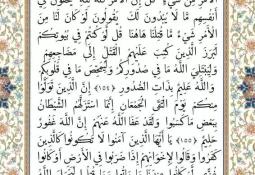 الأمر من شيء قل إن الأمر كله لله يخفون في
أنفسهم ما لا يبدون لك يقولون لو كان لنا من
الأمر شيء ما قتلنا هاهنا قل لو كنتم في بيوتكم
لبرز الذين كتب عليهم القتل إلى مضاجعهم
وليبتلي الله ما في صدوركم وليمحص ما في قلوبكم
والله عليم بذات الصدور (١٥٤) إن الذين تولوا
منكم يوم التقى الجمعان إنما استزلهم الشيطان
ببعض ما كسبوا ولقد عفا الله عنهم إن الله غفور
حليم (١٥٥) يا أيها الذين آمنوا لا تكونوا كالذين
كفروا وقالوا لإخوانهم إذا ضربوا في الأرض أو كانوا